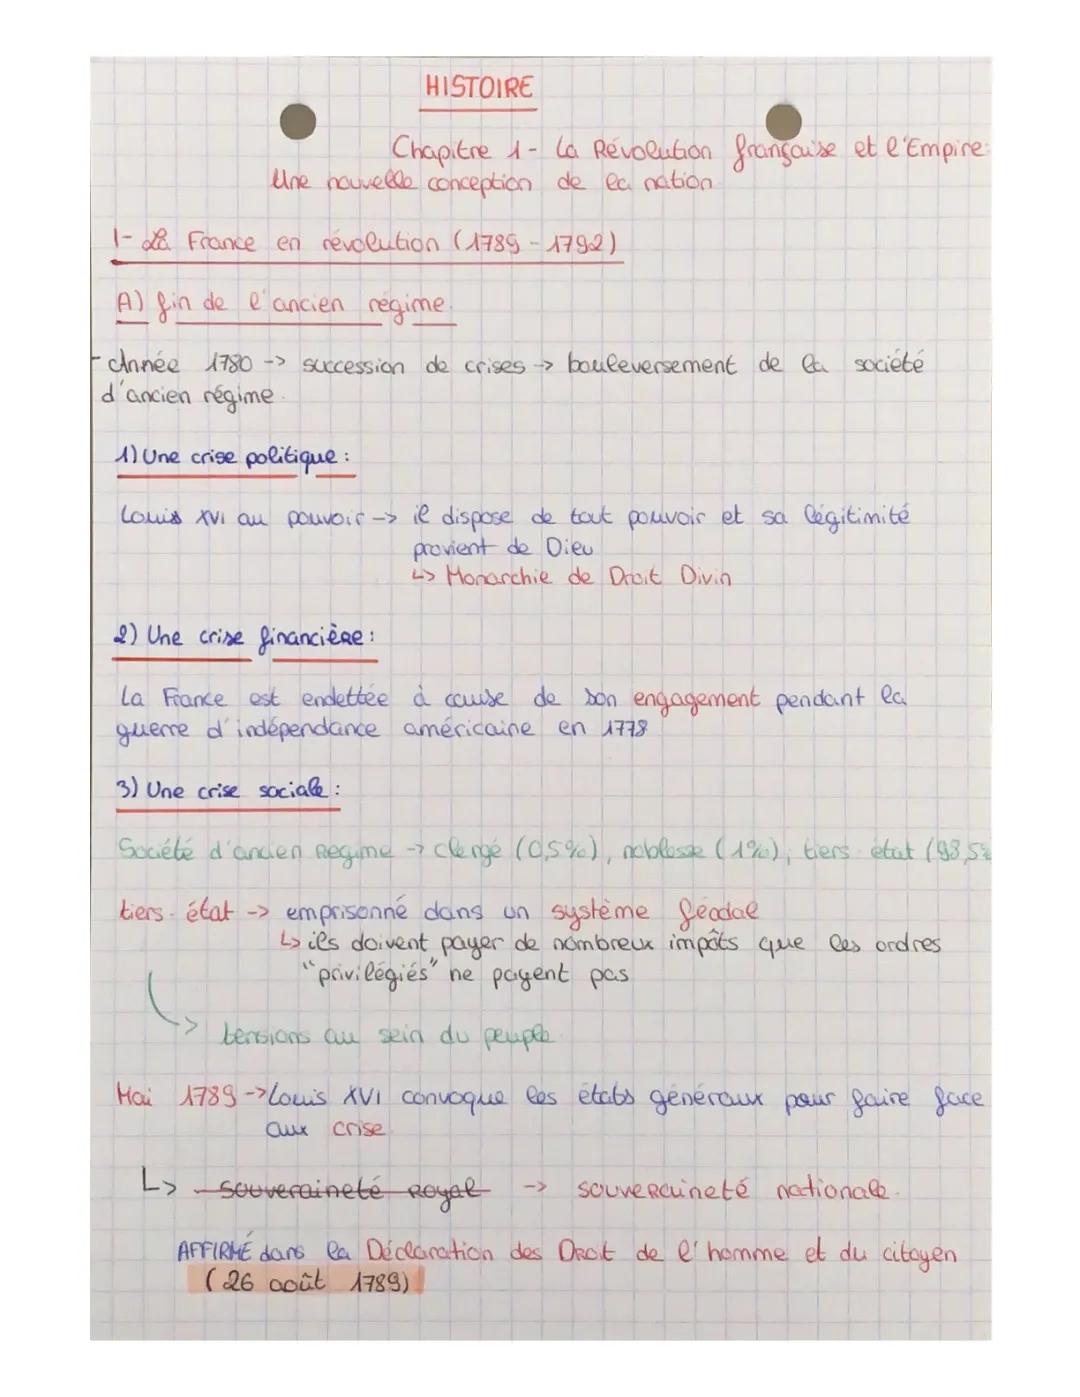 HISTOIRE
Chapitre 1- La Révolution française et l'Empire:
Une nouvelle conception de la nation
I- La France en révolution (1789-1792)
A) fin de l'ancien régime.
- Année 1780 -> succession de crises -> bouleversement de la société
d'ancien régime.
1) Une crise politique :
Louis XVI au pouvoir -> il dispose de tout pouvoir et sa légitimité
provient de Dieu
↳ Monarchie de Droit Divin
2) Une crise financière :
La France est endettée à cause de son engagement pendant la
guerre d'indépendance américaine en 1778
3) Une crise sociale :
Société d'ancien Regime -> clergé (0,5%), noblesse (1%), tiers-état (98,5%
tiers-état -> emprisonné dans un système féodal
↳ ils doivent payer de nombreux impôts que les ordres
"privilégiés" ne payent pas
> tensions au sein du peuple.
Mai 1789 -> Louis XVI convoque les états généraux pour faire face
aux crise.
↳ souveraineté Royal -> souveraineté nationale.
AFFIRMÉ dans la Déclaration des Droit de l'homme et du citoyen
(26 août 1789)